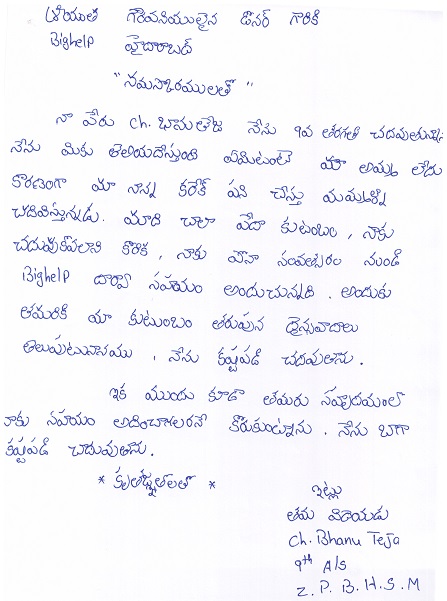 శ్రీయుత గౌరవనీయులైన డోనర్ గారికి
Bighelp హైదారాబద్
"నమస్కారములతో"
నా పేరు ch. భానుతేజ నేను 9వ తరగతి చదువుతున్నాను
నేను మీకు తెలియచేస్తుంది ఏమిటంటే మా అమ్మ లేదు
కారణంగా మా నాన్న కరెక్ పని చేస్తు మమ్మల్ని
చదివిస్తున్నడు. మాది చాలా పేదా కుటుంబం, నాకు
చదువుకోవలని కొరిక, నాకు పోనా సంవత్సరం నుండి
Bighelp ద్వారా సహయం అందుచున్నది. అందుకు
తమరికి మా కుటుంబం తరుపున దైన్యవాదాలు
తెలుపుటున్నాము, నేను కష్టపడి చదువుతాను.
ఇక ముందు కూడా తమరు సహృదయంలో
నాకు సహయం అదించాలరనే కొరుకుంట్టున్నాను. నేను బాగా
కష్టపడి చాదువుతాను.
* కృతజ్ఞతలతో *
ఇట్లు
తమ విదాయడు
Ch. Bhanu Teja
9th A/s
Z. P. B. H. S. M